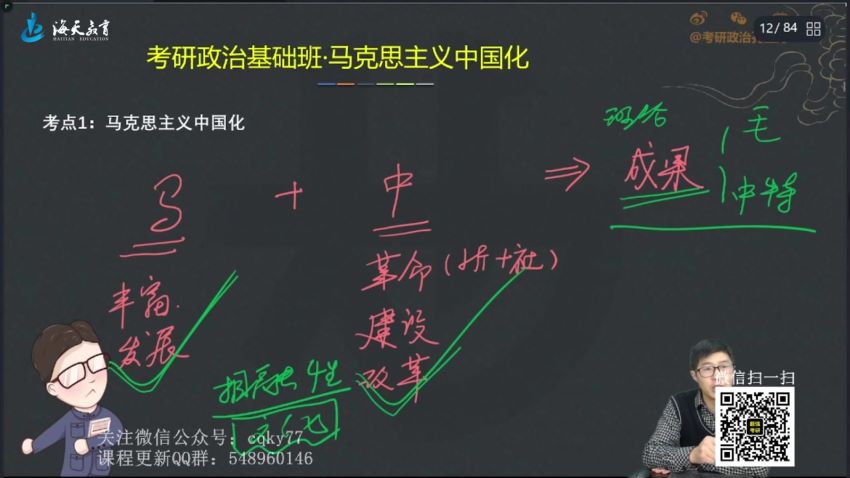 海天教育
HAITIAN EDUCATION
12/84
@考研政治
考研政治基础班·马克思主义中国化
考点1：马克思主义中国化
理论
成果
毛
中特
马 + 中 ⇒
丰富.
发展
革命（新+社）
建设
改革
相结合
微信扫一扫
关注微信公众号：cqky77
课程更新QQ群：548960146